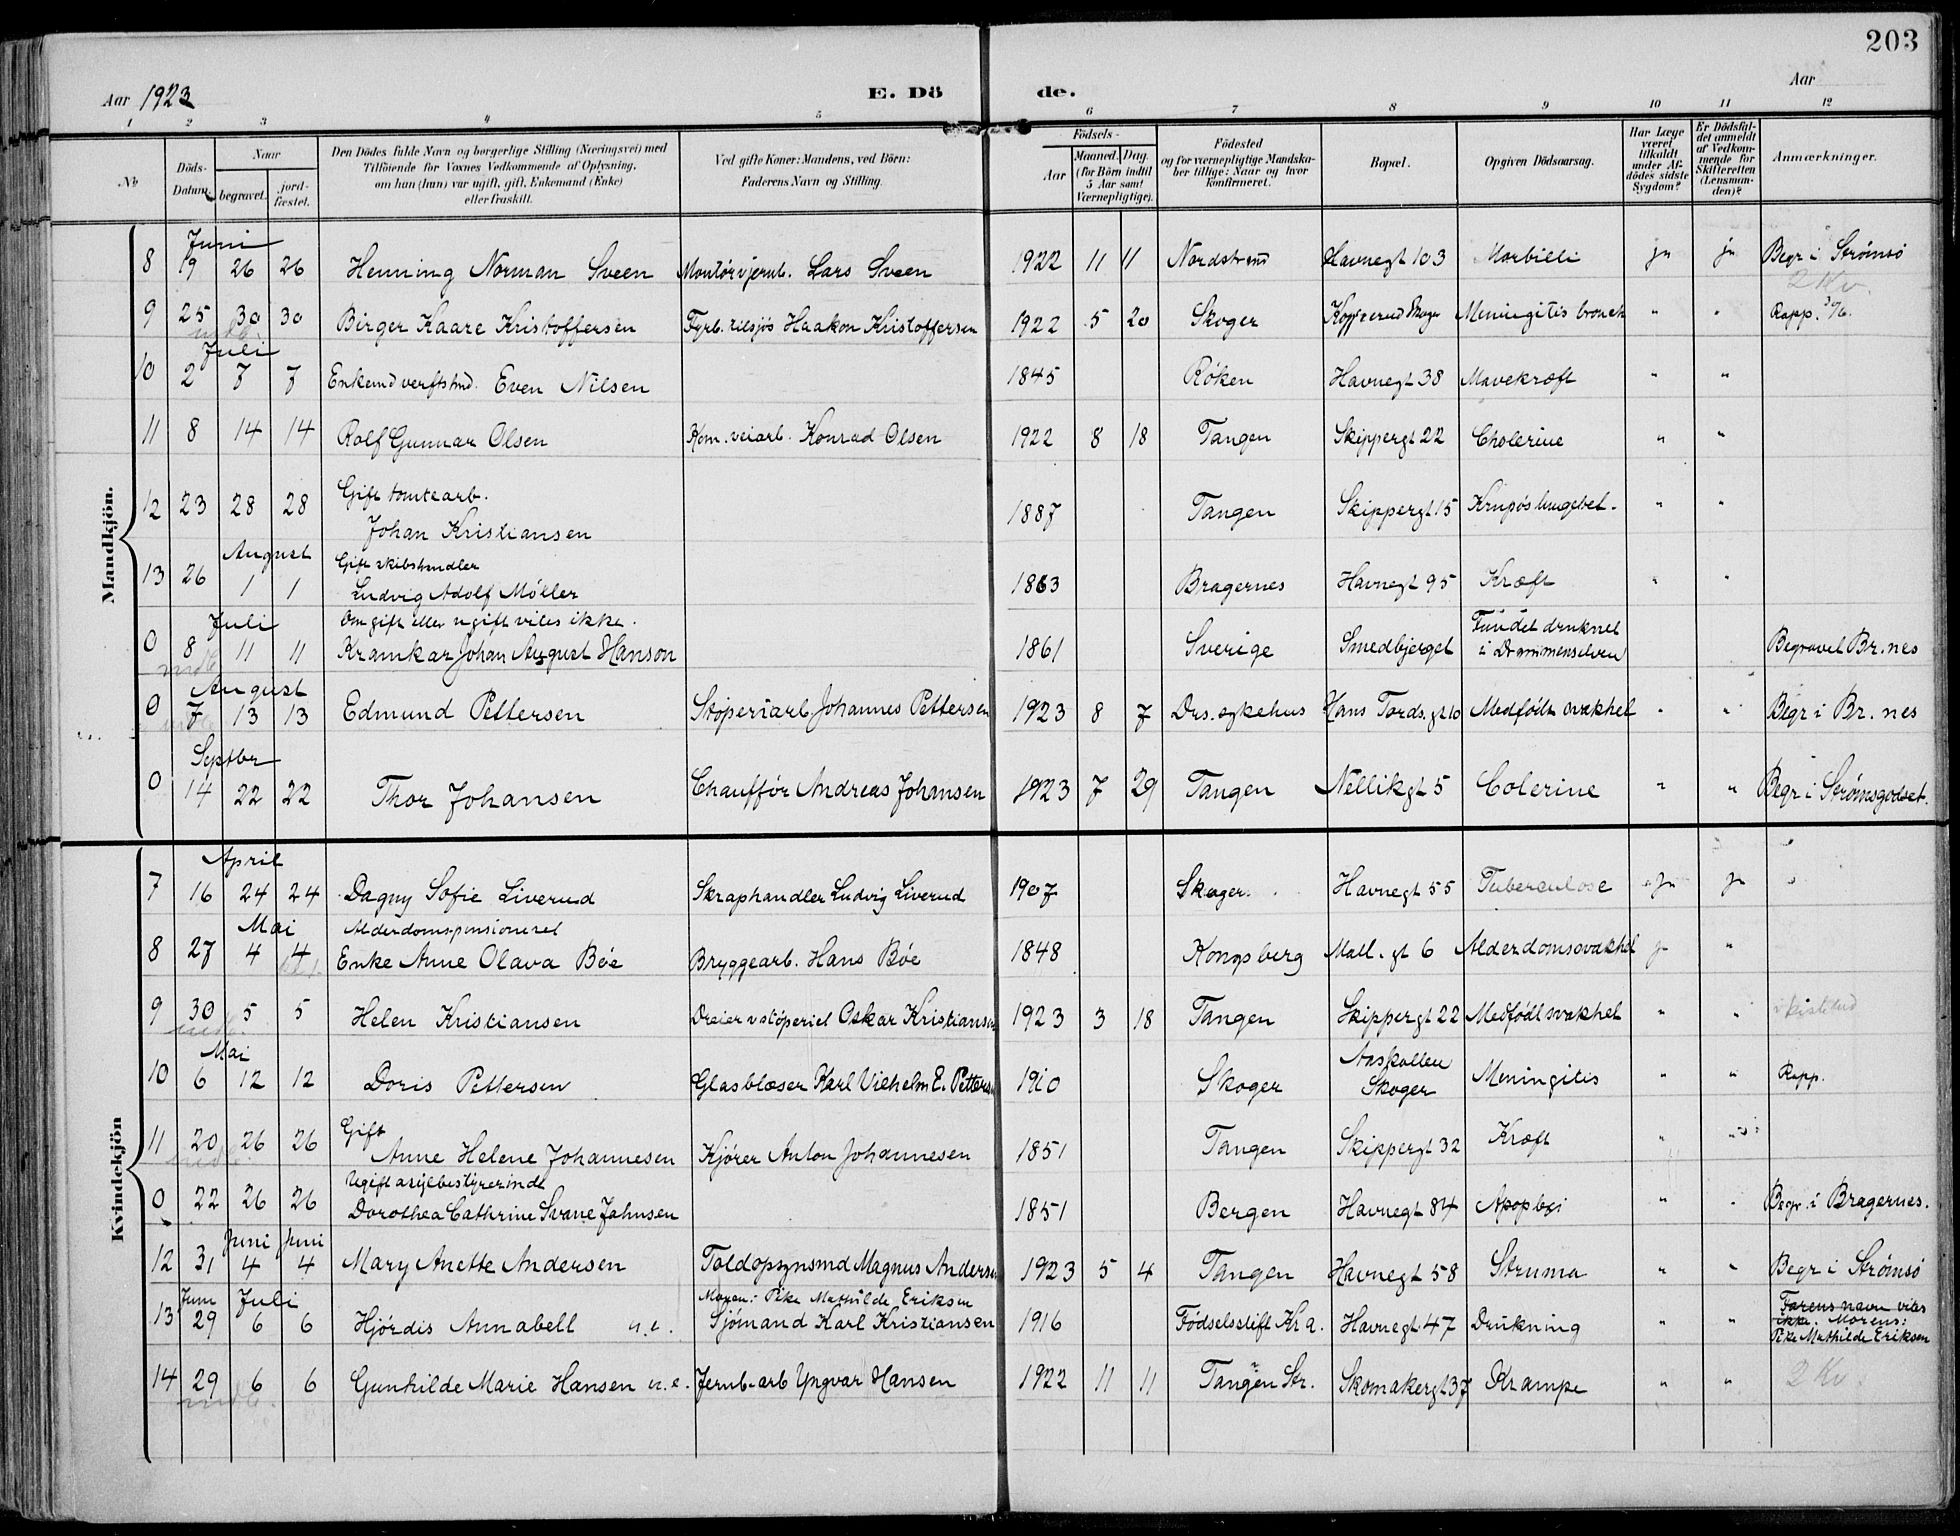 203
Aar 1923
E. Dö de.
Aar
1 2 3 4 5 6 7 8 9 10 11 12
No
Döds-Datum.
Naar
begravet.
jord-fæstet.
Den Dödes fulde Navn og borgerlige Stilling (Næringsvei) med
Tilföiende for Voxnes Vedkommende af Oplysning,
om han (hun) var ugift, gift, Enkemand (Enke)
eller fraskilt.
Ved gifte Koner: Mandens, ved Börn:
Faderens Navn og Stilling.
Födsels-
Aar
Maaned. Dag.
(for Börn indtil
5 Aar samt
Værnepligtige).
Födested
og for værnepligtige Mandska-
ber tillige: Naar og hvor
konfirmeret.
Bopæl.
Opgiven Dödsaarsag.
Har Læge
været
tilkaldt
under Af-
dödes sidste
Sygdom?
Er Dödsfal-
det anmeldt
af Vedkom-
mende for
Skifteretten
(Lensman-
den)?
Anmærkninger.
Mandkjön.
Juni
8 19 26 26 Henning Norman Sveen Montör v jernb. Lars Sveen 1922 11 11 Nordstrand Havnegt 103 Morbilli ja ja Begr i Strömsö
2 Kv.
9 25 30 30 Birger Kaare Kristoffersen Fyrb. tilsjös Haakon Kristoffersen 1922 5 20 Skoger Skoger Meningitis bronch " " Rapp. 30/6.
indb
Juli
10 2 7 7 Enkemd verftstmd. Even Nilsen 1845 Röken Havnegt 38 Mavekræft " "
11 8 14 14 Rolf Gunnar Olsen Kom. veiarb. Konrad Olsen 1922 8 18 Tangen Skippergt 22 Cholerine " "
12 23 28 28 Gift tomtearb.
Johan Kristiansen 1887 Tangen Skippergt 15 Krupös lungebet. " "
August
13 26 1 1 Gift skibshandler
Ludvig Adolf Möller 1863 Bragernes Havnegt 95 Kræft " "
Juli
0 8 11 11 Om gift eller ugift vites ikke.
Kramkar Johan August Hanson 1861 Sverige Smedbjerget Fundet druknet
i Drammenselven Begravet Br.nes
indb
August
0 7 13 13 Edmund Pettersen Stöperiarb Johannes Pettersen 1923 8 7 Drs. sykehus Hans Tords. gt 10 Medfödt svakhet " " Begr i Br.nes
indb
Septbr
0 14 22 22 Thor Johansen Chaufför Andreas Johansen 1923 7 29 Tangen Nellikgt 5 Colerine " " Begr i Strömsgodset.
Kvindekjön
April
7 16 24 24 Dagny Sofie Liverud Skraphandler Ludvig Liverud 1907 Skoger. Havnegt 55 Tuberculose ja ja
Mai
Alderdomspensioneret
8 27 4 4 Enke Anne Olava Böe Bryggearb. Hans Böe 1848 Kongsberg Mall. gt 6 Alderdomssvakhet ja "
9 30 5 5 Helen Kristiansen Dreier v stöperiet Oskar Kristiansen 1923 3 18 Tangen Skippergt 22 Medfödt svakhet " "
indb.
Mai
10 6 12 12 Doris Pettersen Glasblæser Karl Vilhelm E. Pettersen 1910 Skoger Aaskollen
Skoger Meningitis " " Rapp.
11 20 26 26 Gift
Anne Helene Johannesen Kjörer Anton Johannesen 1851 Tangen Skippergt 32 Kræft " "
indb
0 22 26 26 Ugift asylbestyrerinde
Dorothea Cathrine Svane Jahnsen 1851 Bergen Havnegt 84 Apoplexi " " Begr. i Bragernes.
Juni Juni
12 31 4 4 Mary Anette Andersen Toldopsynsmd Magnus Andersen 1923 5 4 Tangen Havnegt 58 Struma " " Begr i Strömsö
Juni Juli
13 29 6 6 Hjördis Annabell u.e. Moren: Pike Mathilde Eriksen
Sjömand Karl Kristiansen 1916 Födselsstift Kra. Havnegt 47 Drukning " " Farens navn vites
ikke. Morens:
Pike Mathilde Eriksen
14 29 6 6 Gunhilde Marie Hansen u.e. Jernb-arb Yngvar Hansen 1922 11 11 Tangen Str. Skomakergt 37 Krampe " " 2 Kv.
indb.